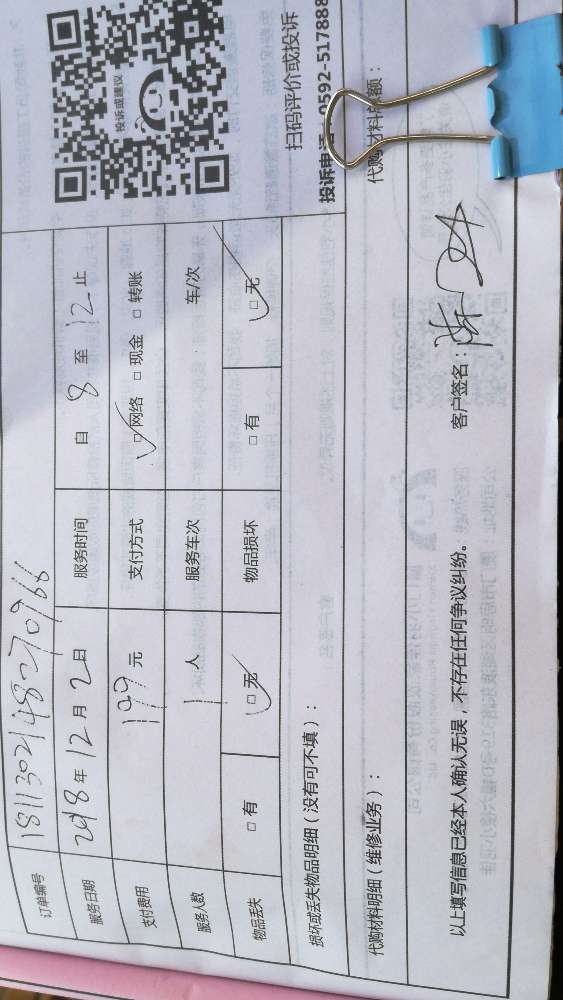 订单编号 1811302148270966
服务日期 2018年12月2日 服务时间 自8至12止
支付费用 199元 支付方式 ☑网络 □现金 □转账
服务人数 1人 服务车次 车/次
物品丢失 □有 ☑无 物品损坏 □有 ☑无
投诉或建议
扫码评价或投诉
投诉电话：0592-517888
损坏或丢失物品明细（没有可不填）：
代购材料明细（维修业务）： 代购材料总额：
以上填写信息已经本人确认无误，不存在任何争议纠纷。 客户签名：